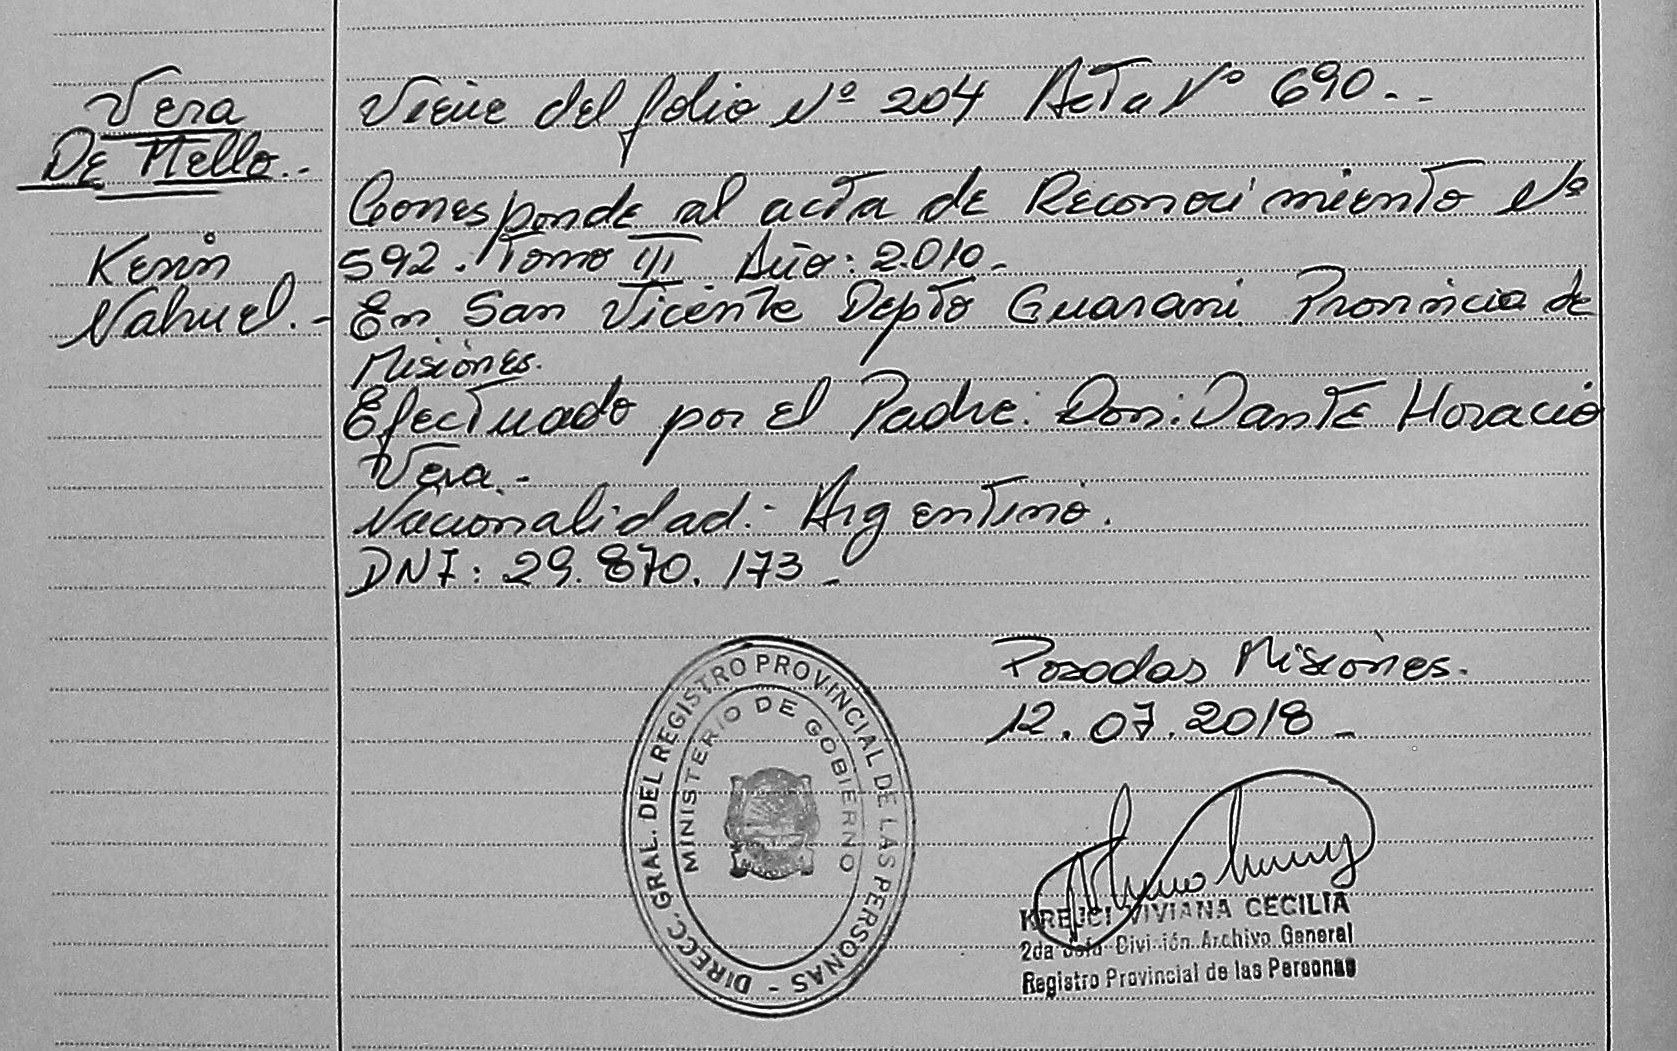 Vera
De Mello.-
Kevin
Nahuel.-
Viene del folio Nº 204 Acta Nº 690.-
Corresponde al acta de Reconocimiento Nº
592. Tomo III Año: 2.010.-
En San Vicente Depto Guarani Provincia de
Misiones.
Efectuado por el Padre: Don: Dante Horacio
Vera.-
Nacionalidad:- Argentino.
DNI: 29.870.173.-
Posadas Misiones.
12.07.2018.-
DIRECC. GRAL. DEL REGISTRO PROVINCIAL DE LAS PERSONAS -
MINISTERIO DE GOBIERNO
KREJCI VIVIANA CECILIA
2da Jefa División Archivo General
Registro Provincial de las Personas